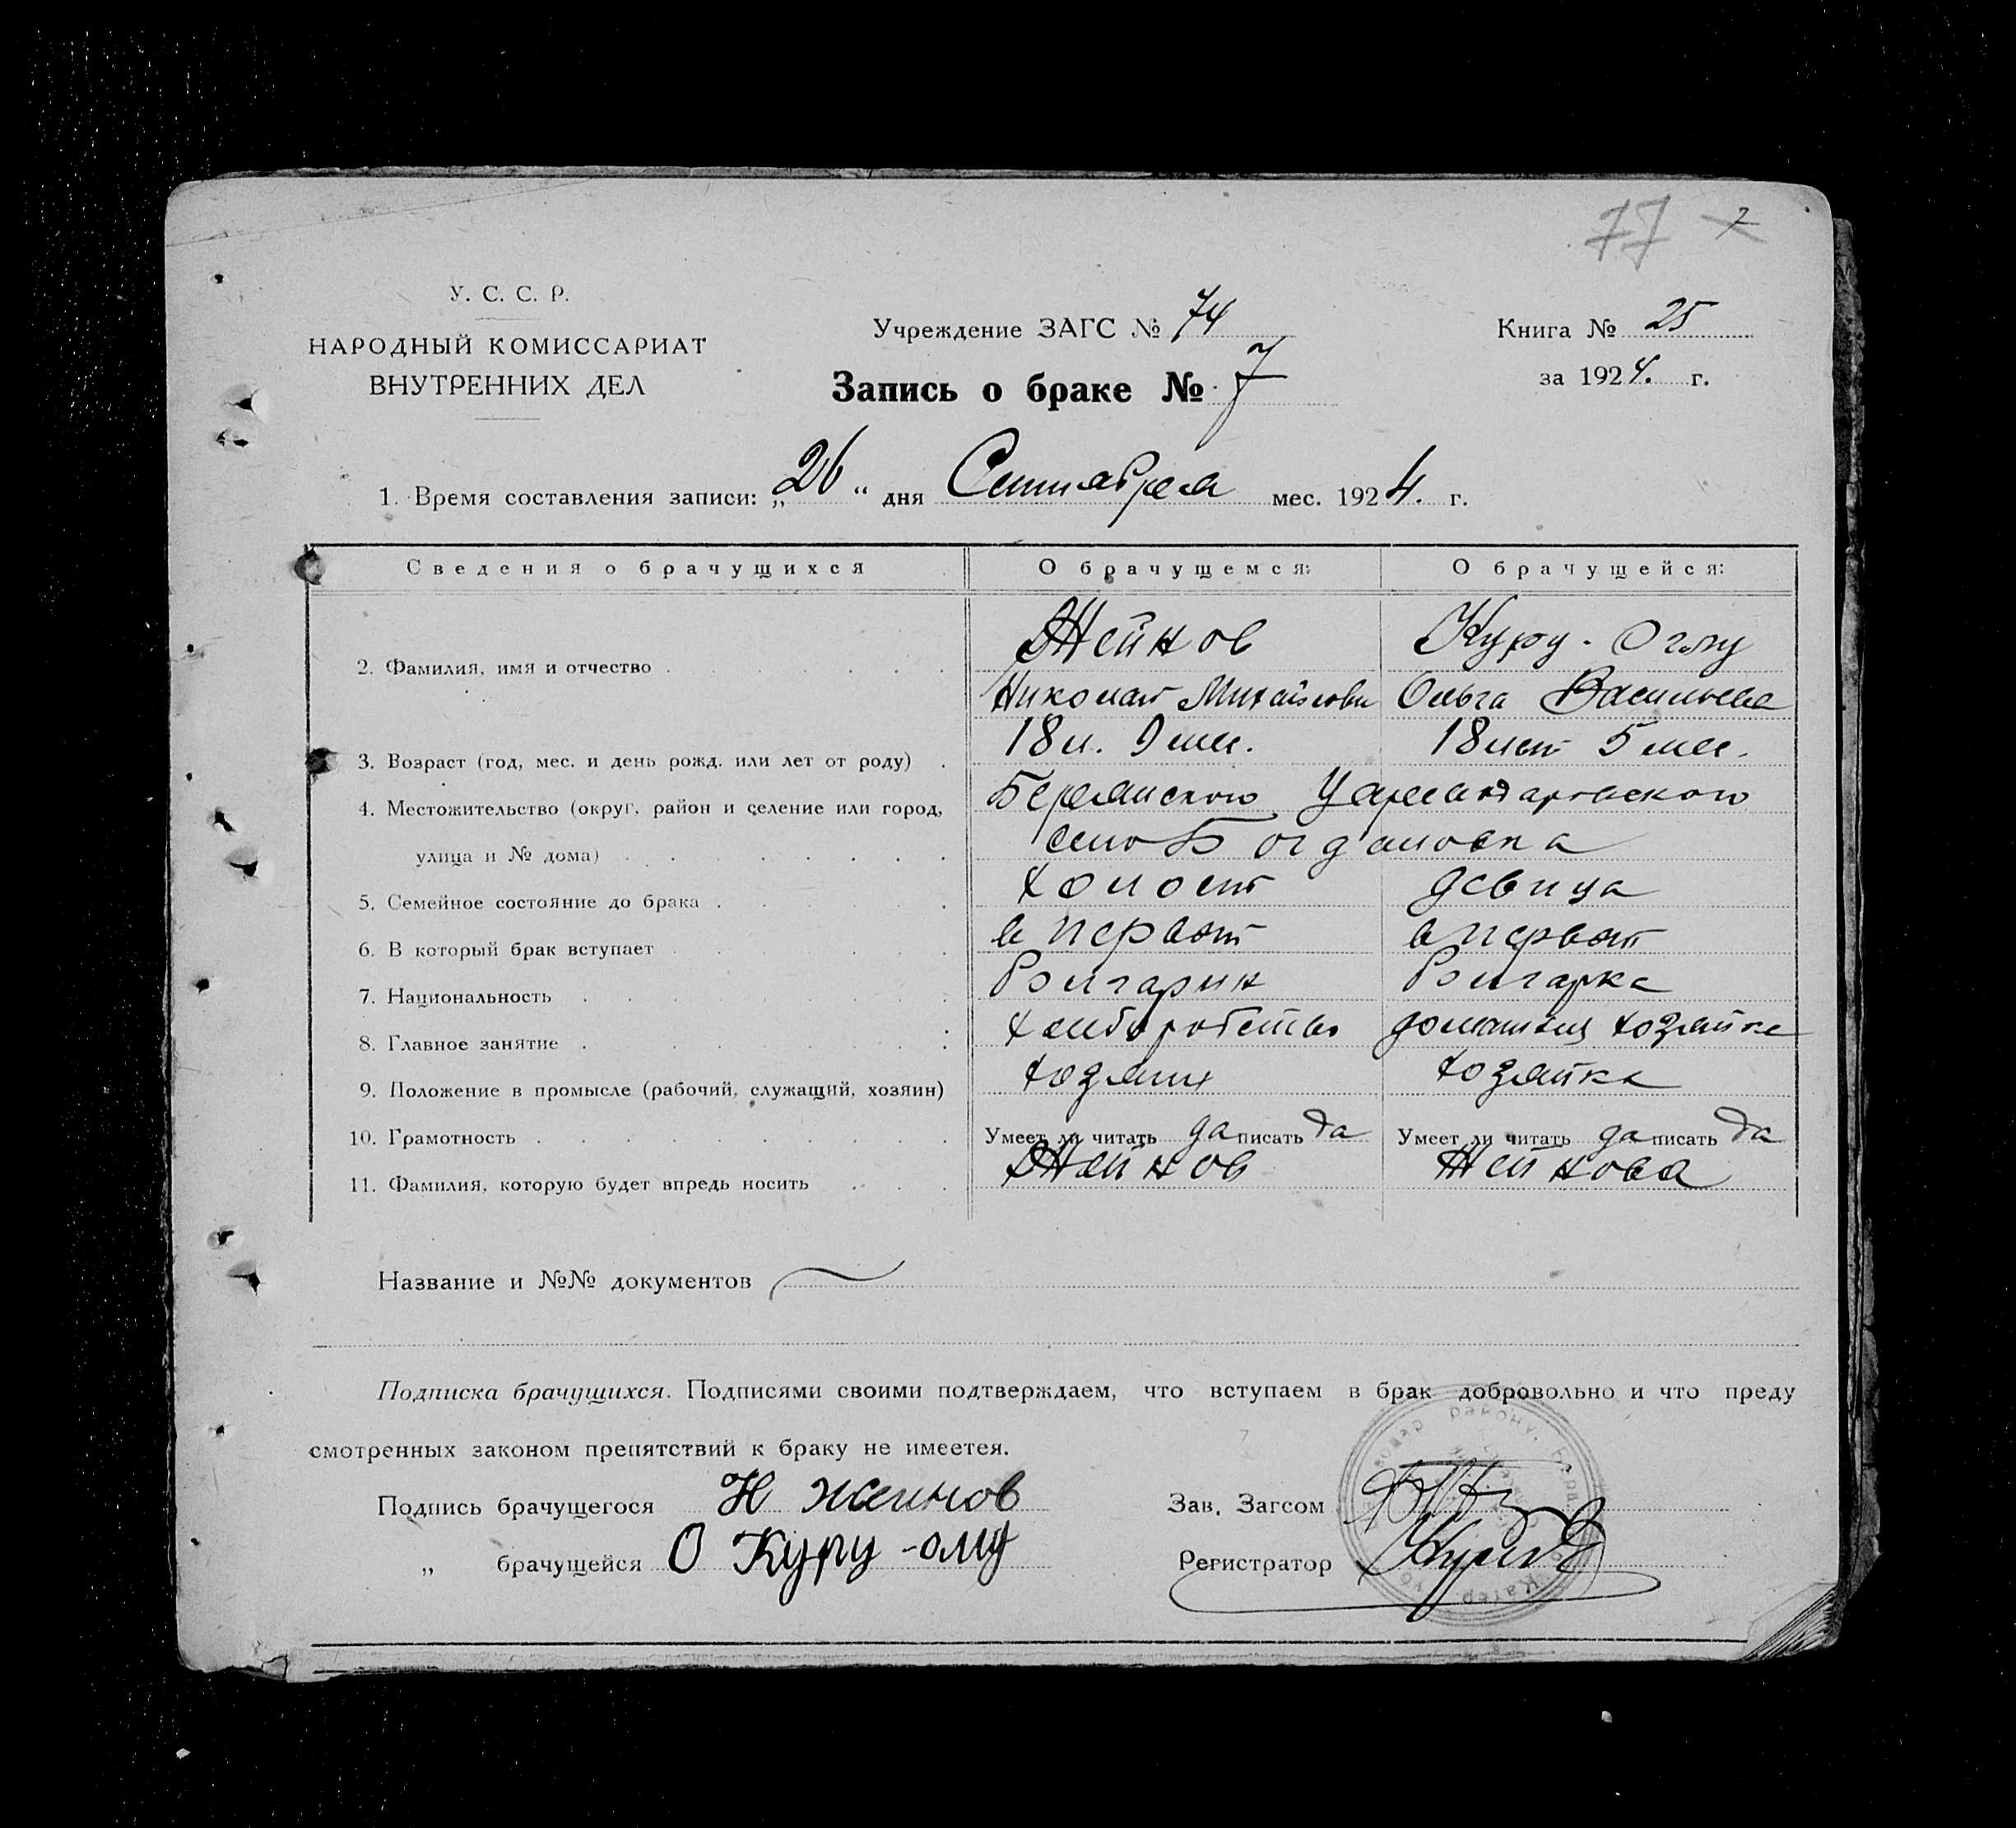 77 7
У. С. С. Р.
НАРОДНЫЙ КОМИССАРИАТ
ВНУТРЕННИХ ДЕЛ
Учреждение ЗАГС № 74
Запись о браке № 7
Книга № 25
за 1924. г.
1. Время составления записи: „26“ дня Сентября мес. 1924. г.
Сведения о брачущихся О брачущемся: О брачущейся:
2. Фамилия, имя и отчество Жейнов Куру-Оглу
Николай Михайлови Ольга Васильева
3. Возраст (год, мес. и день рожд. или лет от роду) 18 л. 9 мес. 18 лет 5 мес.
4. Местожительство (округ, район и селение или город, Бердянского Цареводаровского
улица и № дома) село Богдановка
5. Семейное состояние до брака холост девица
6. В который брак вступает в первый в первый
7. Национальность Болгарин Болгарка
8. Главное занятие хлеборобство домашняя хозяйка
9. Положение в промысле (рабочий, служащий, хозяин) хозяин хозяйка
10. Грамотность Умеет ли читать да писать да Умеет ли читать да писать да
11. Фамилия, которую будет впредь носить Жейнов Жейнова
Название и №№ документов
Подписка брачущихся. Подписями своими подтверждаем, что вступаем в брак добровольно и что преду
смотренных законом препятствий к браку не имеется.
Подпись брачущегося Н Жейнов Зав. Загсом
„ брачущейся О Куру-оглу Регистратор